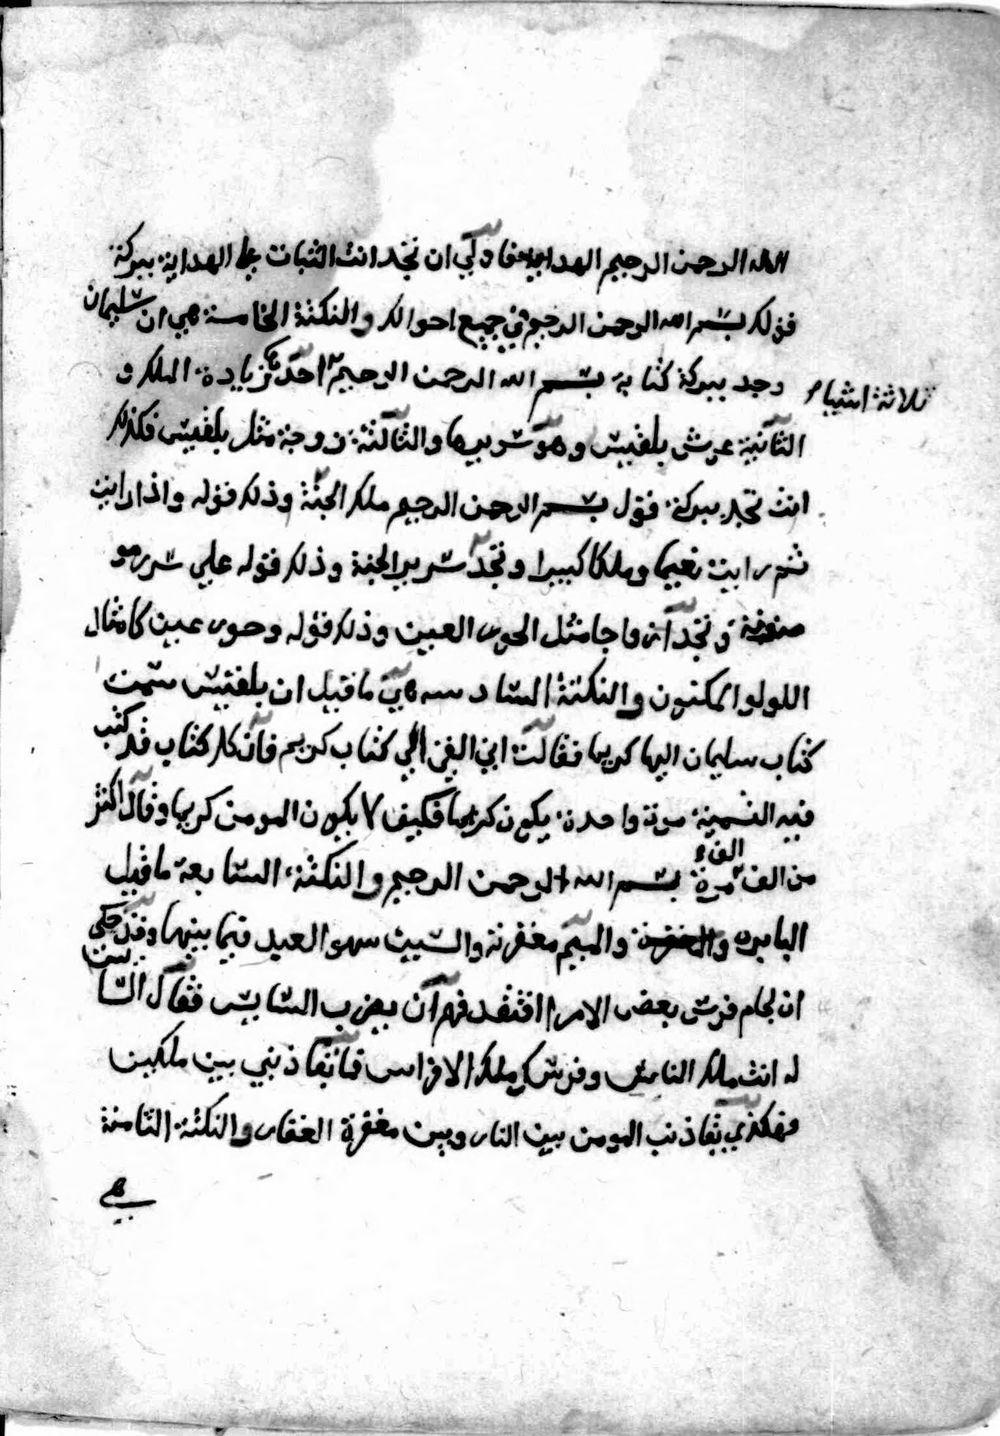 الله الرحمن الرحيم الهداية فاولى ان تجد انت الثبات على الهداية ببركة
قولك بسم الله الرحمن الرحيم في جميع احوالك والنكتة الخامسة هي ان سليمان
وجد ببركة كتابة بسم الله الرحمن الرحيم احدها زيادة الملك و
ثلاثة اشياء
الثانية عرش بلقيس وهو سريرها والثالثة زوجة مثل بلقيس فكذلك
انت تجد ببركة قول بسم الرحمن الرحيم ملك الجنة وذلك قوله واذا رايت
ثم رايت نعيما وملكا كبيرا وتجد سرير الجنة وذلك قوله علي سرر مو
ضونة وتجد ازواجا مثل الحور العين وذلك قوله وحور عين كامثال
اللولو المكنون والنكتة السادسه هي ما قيل ان بلقيس سمت
كتاب سليمان اليها كريما فقالت اني القي الي كتاب كريم فان كل كتاب قد كتب
فيه التسمية مرة واحدة يكون كريما فكيف لا يكون المومن كريما وقال اكثر
من الف الف مرة بسم الله الرحمن الرحيم والنكتة السابعة ما قيل
البا بره والميم مغفرته والسين سهو العبد فيما بينهما وقد حكي
ان لجام فرس بعض الامرا افتقد فهم ان يضرب السايس فقال السايس
له انت ملك الناس وفرسك ملك الافراس فاتقاذني بين ملكين
فهكذي يتقاذ نب المومن بين النار وبين مغفرة الغفار والنكتة الثامنة
هي